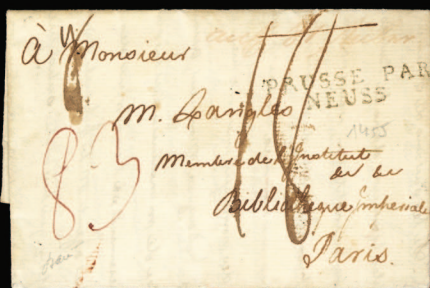 à Monsieur
PRUSSE PAR
NEUSS
M. Langlès
Membre de l'Institut
et de
Bibliothèque Impériale
Paris.
83
18
1455